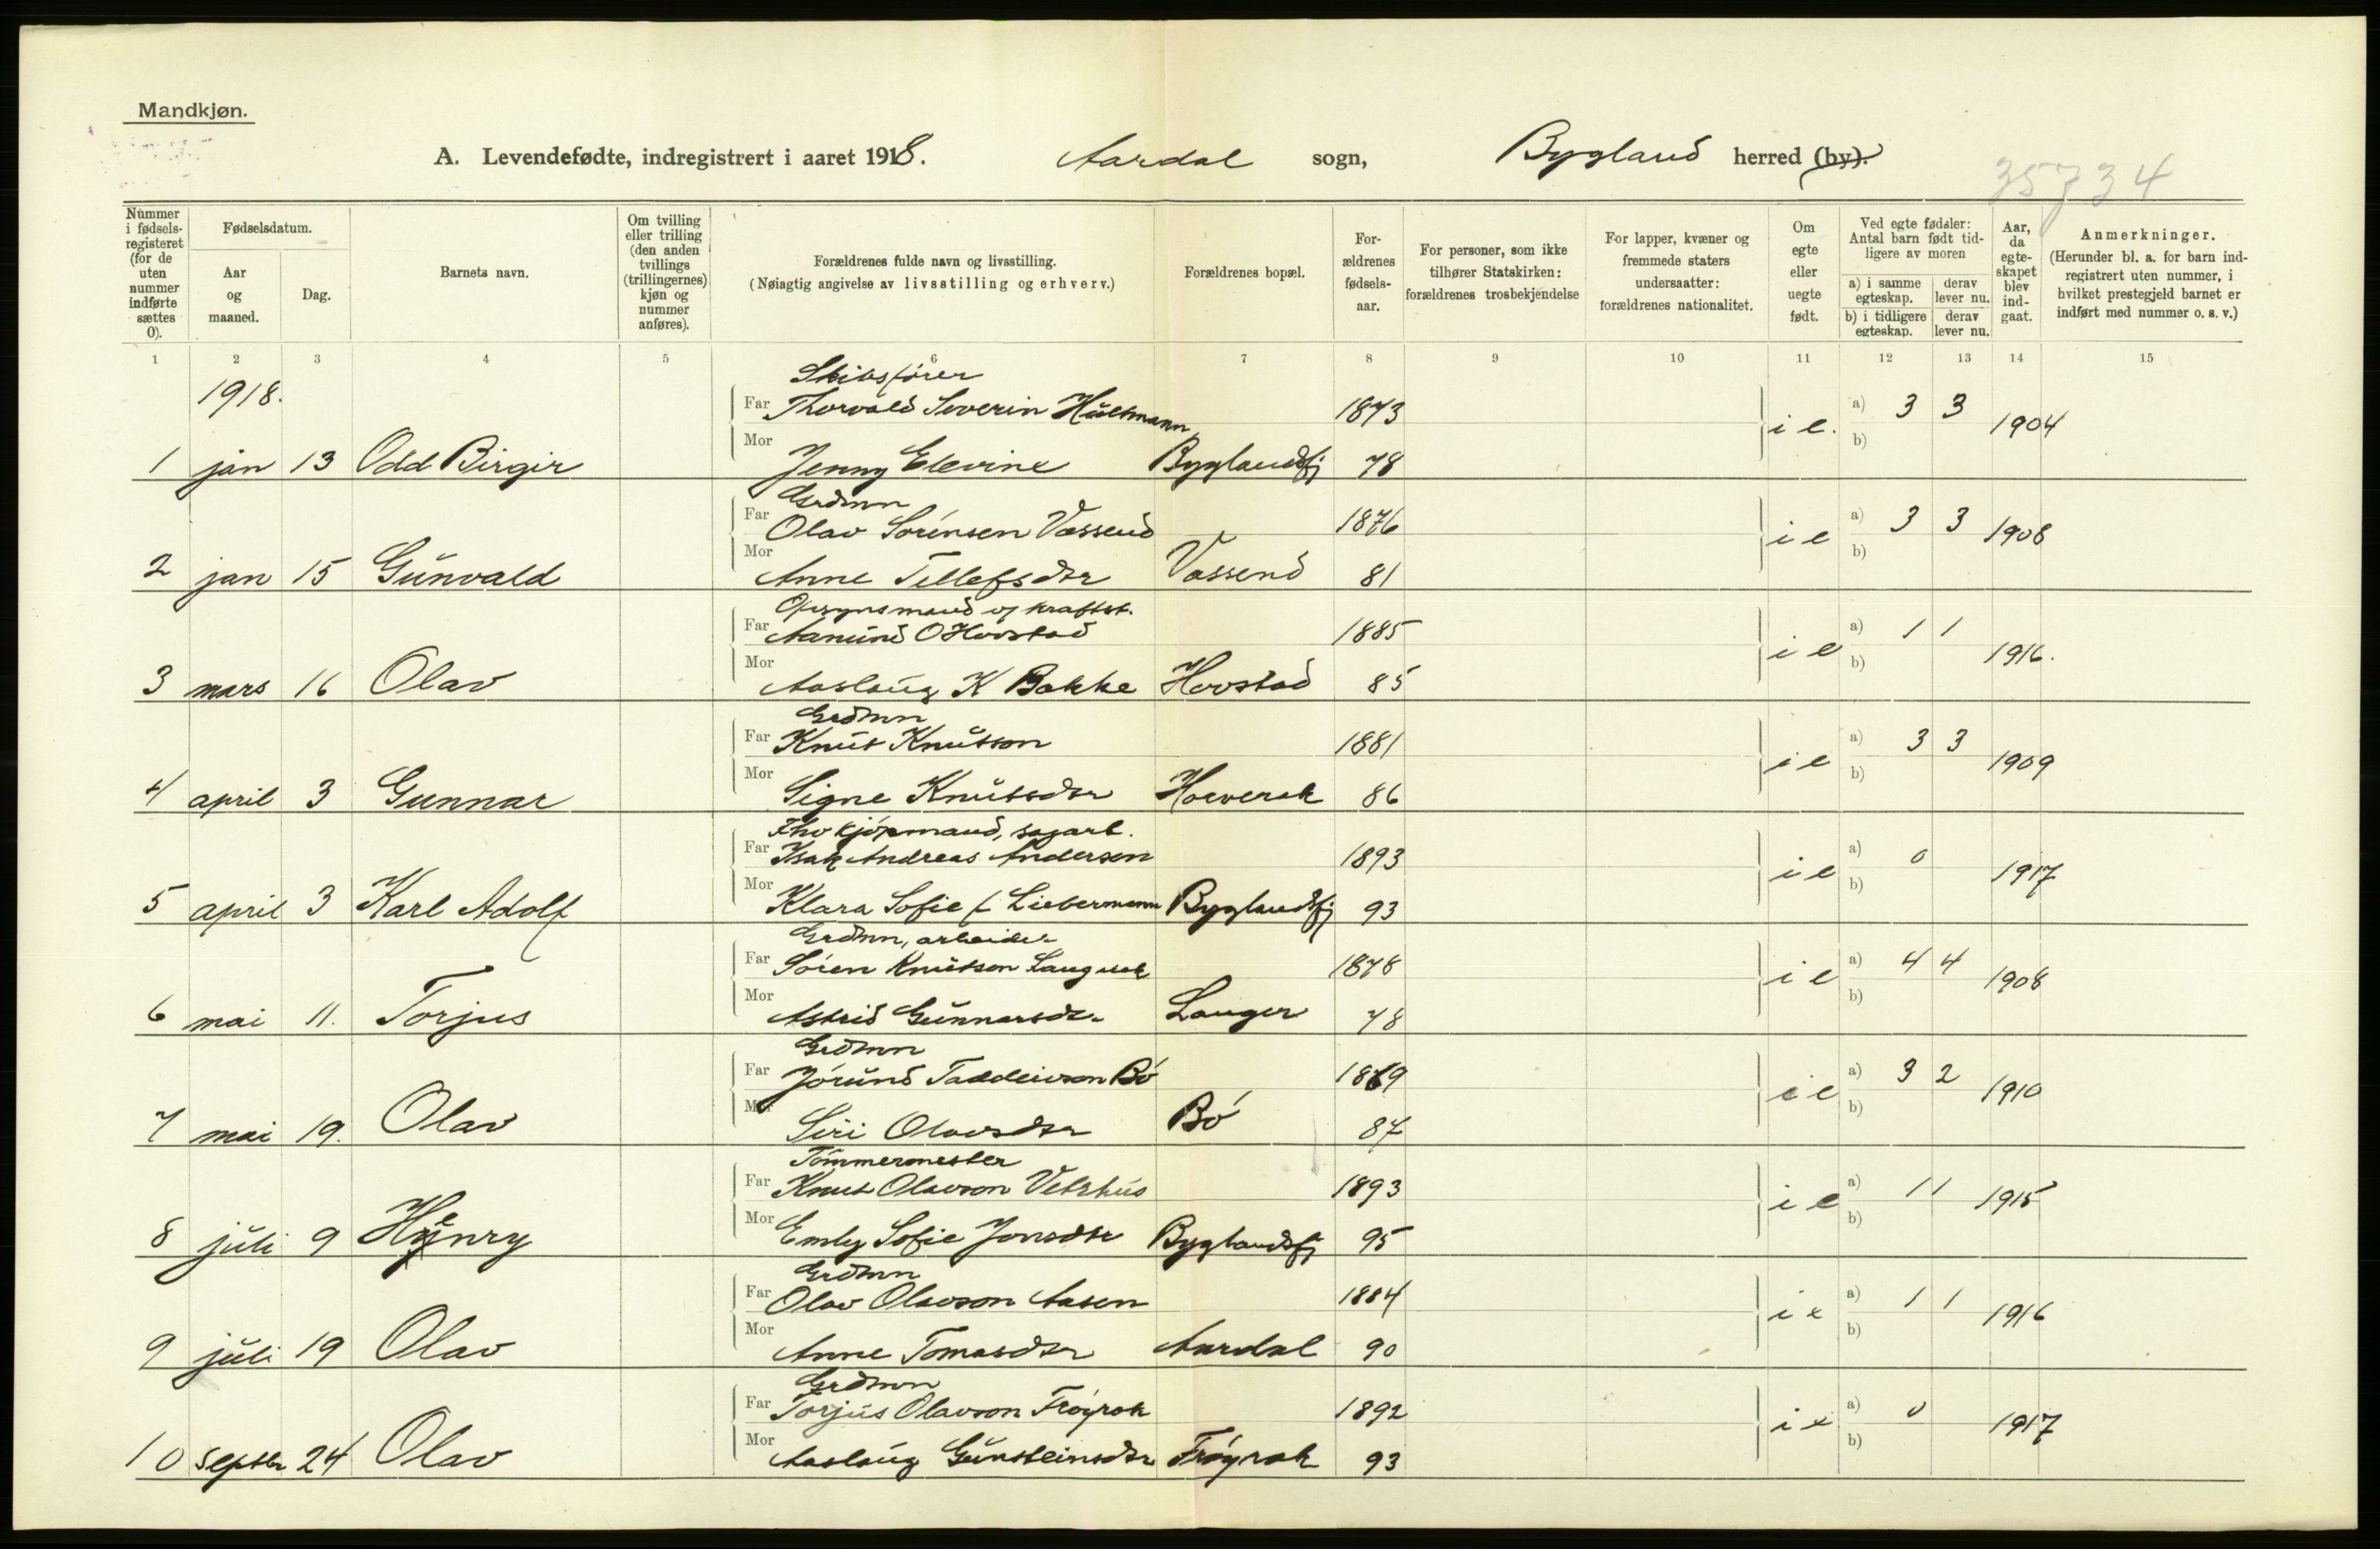 Mandkjøn.
A. Levendefødte, indregistrert i aaret 1918. Aardal sogn, Bygland herred (by).
35734
Nummer i fødsels-registeret (for de uten nummer indførte sættes 0).
Fødselsdatum.
Aar og maaned.
Dag.
Barnets navn.
Om tvilling eller trilling (den anden tvillings (trillingernes) kjøn og nummer anføres).
Forældrenes fulde navn og livsstilling.
(Nøiagtig angivelse av livsstilling og erhverv.)
Forældrenes bopæl.
For-ældrenes fødsels-aar.
For personer, som ikke tilhører Statskirken: forældrenes trosbekjendelse
For lapper, kvæner og fremmede staters undersaatter: forældrenes nationalitet.
Om egte eller uegte født.
Ved egte fødsler: Antal barn født tid-ligere av moren
a) i samme egteskap. derav lever nu.
b) i tidligere egteskap. derav lever nu.
Aar, da egte-skapet blev ind-gaat.
Anmerkninger.
(Herunder bl. a. for barn ind-registrert uten nummer, i hvilket prestegjeld barnet er indført med nummer o. s. v.)
1 2 3 4 5 6 7 8 9 10 11 12 13 14 15
1918.
Skibsfører
Far Thorvald Severin Hultmann 1873 i e. a) 3 3 1904
b)
1 jan 13 Odd Birgir Mor Jenny Elevine Byglandsfj 78
Grdmn
Far Olav Sørensen Vassend 1876 i e a) 3 3 1908
b)
2 jan 15 Gunvald Mor Anne Tellefsdtr Vassend 81
Opsynsmand v/ kraftst.
Far Aamund O Hovstad 1885 i e a) 1 1 1916.
b)
3 mars 16 Olav Mor Aaslaug K Bakke Hovstad 85
Grdmn
Far Knut Knutson 1881 i e a) 3 3 1909
b)
4 april 3 Gunnar Mor Signe Knutsdtr Horverak 86
kjøpmand, sagarb.
Far Isak Andreas Andersen 1893 i e a) 0 1917
b)
5 april 3 Karl Adolf Mor Klara Sofie f. Liebermann Byglandsfj 93
Grdmn, arbeider
Far Søren Knutson Langerak 1878 i e a) 4 4 1908
b)
6 mai 11. Torjus Mor Astrid Gunnarsdr. Langer 78
Grdmn
Far Jørund Taddeivson Bø 1869 i e a) 3 2 1910
b)
7 mai 19. Olav Mor Siri Olavsdtr Bø 87
Tømmermester
Far Knut Olavson Vetrhus 1893 i e a) 1 1 1915
b)
8 juli 9 Henry Mor Emly Sofie Jonsdtr Byglandsfj 95
Grdmn
Far Olav Olavson Aasen 1884 i e a) 1 1 1916
b)
9 juli 19 Olav Mor Anne Tomasdtr Aardal 90
Grdmn
Far Torjus Olavson Frøyrak 1892 i e a) 0 1917
b)
10 septbr 24 Olav Mor Aaslaug Gunsteinsdtr Frøyrak 93